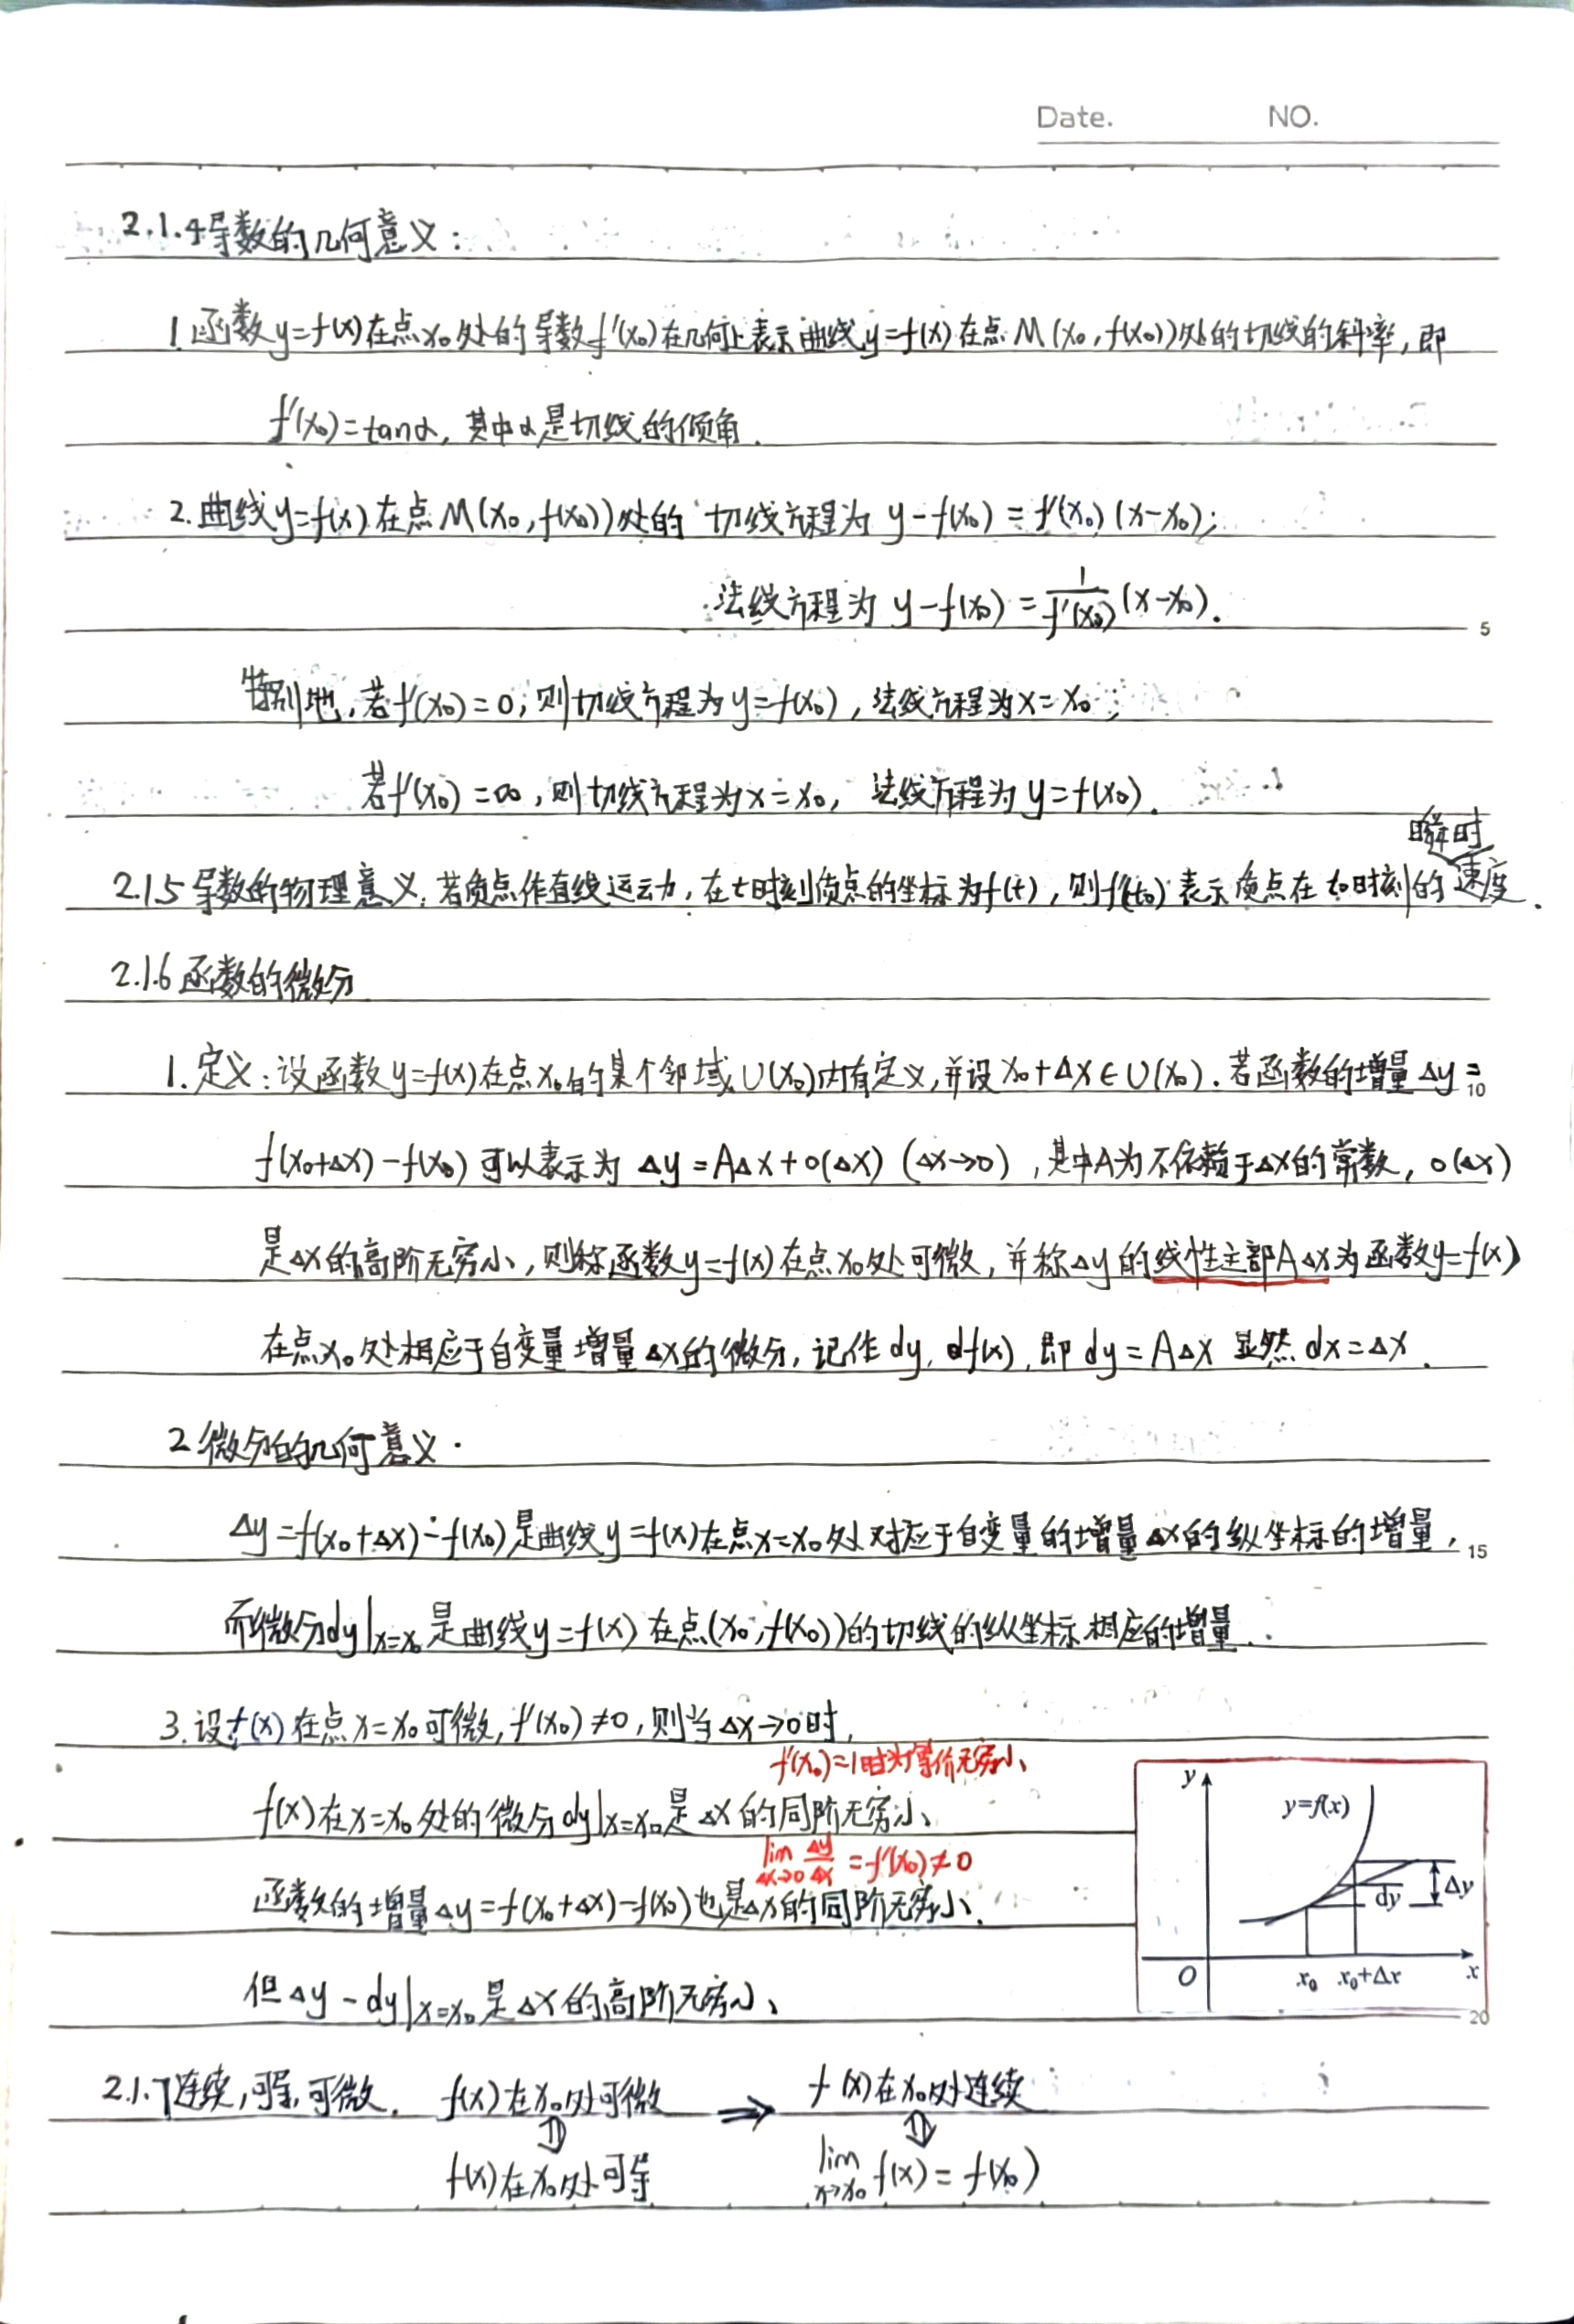 Date. NO.
2.1.4导数的几何意义:
1.函数y=f(x)在点x₀处的导数f'(x₀)在几何上表示曲线y=f(x)在点M(x₀,f(x₀))处的切线的斜率,即
f'(x₀)=tanα,其中α是切线的倾角.
2.曲线y=f(x)在点M(x₀,f(x₀))处的 切线方程为 y-f(x₀)=f'(x₀)(x-x₀);
法线方程为 y-f(x₀)=1/f'(x₀)(x-x₀).
5
特别地,若f'(x₀)=0,则切线方程为y=f(x₀),法线方程为x=x₀;
若f'(x₀)=∞,则切线方程为x=x₀, 法线方程为y=f(x₀).
瞬时
2.1.5 导数的物理意义:若质点作直线运动,在t时刻质点的坐标为f(t),则f'(t₀)表示质点在t₀时刻的速度.
2.1.6函数的微分
1.定义:设函数y=f(x)在点x₀的某个邻域U(x₀)内有定义,并设x₀+Δx∈U(x₀).若函数的增量Δy=
10
f(x₀+Δx)-f(x₀)可以表示为 Δy=AΔx+o(Δx) (Δx→0),其中A为不依赖于Δx的常数,o(Δx)
是Δx的高阶无穷小,则称函数y=f(x)在点x₀处可微,并称Δy的线性主部AΔx为函数y=f(x)
在点x₀处相应于自变量增量Δx的微分,记作dy,df(x),即dy=AΔx 显然dx=Δx.
2.微分的几何意义.
Δy=f(x₀+Δx)-f(x₀)是曲线y=f(x)在点x=x₀处对应于自变量的增量Δx的纵坐标的增量,
15
而微分dy|x=x₀是曲线y=f(x)在点(x₀,f(x₀))的切线的纵坐标相应的增量.
3.设f(x)在点x=x₀可微,f'(x₀)≠0,则当Δx→0时,
f'(x₀)=1时为等价无穷小、
f(x)在x=x₀处的微分dy|x=x₀是Δx的同阶无穷小、
lim Δx→0 Δy/Δx=f'(x₀)≠0
函数的增量Δy=f(x₀+Δx)-f(x₀)也是Δx的同阶无穷小、
但Δy-dy|x=x₀是Δx的高阶无穷小、
y
y=f(x)
dy
Δy
O
x₀
x₀+Δx
x
20
2.1.7连续,可导,可微. f(x)在x₀处可微 ⇒ f(x)在x₀处连续
⇕ ⇕
f(x)在x₀处可导 lim x→x₀ f(x)=f(x₀)